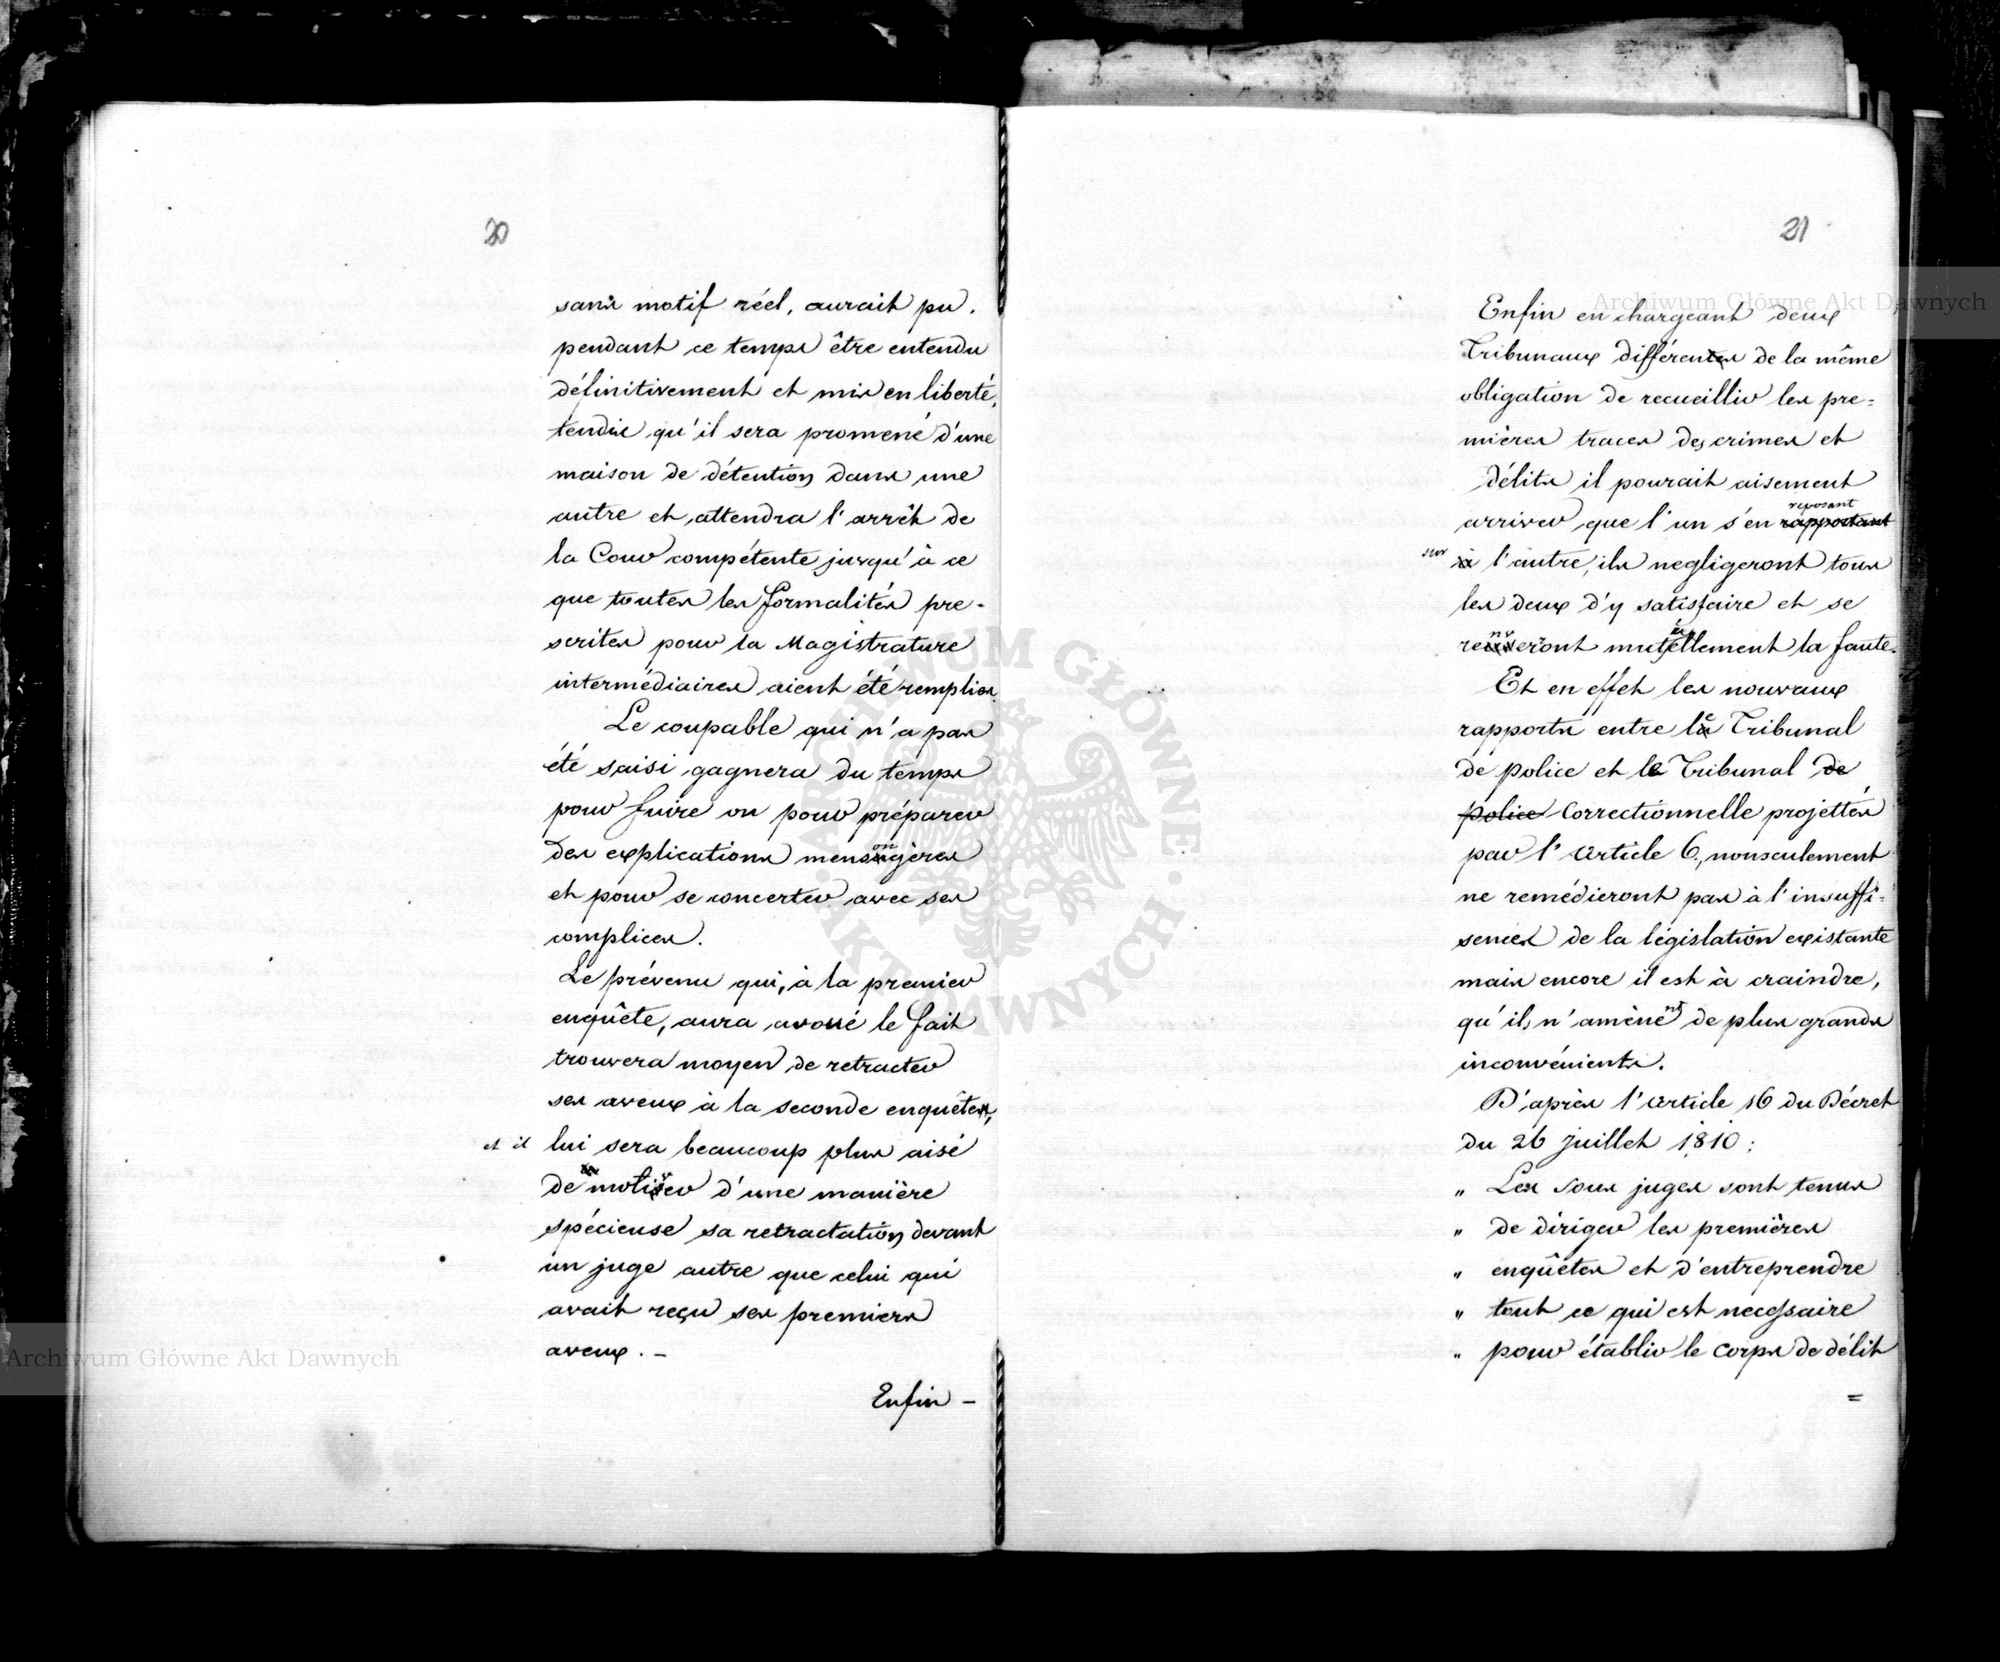 20
sans motif réel, aurait pu.
pendant ce temps être entendu
définitivement et mis en liberté,
tendis qu'il sera promené d'une
maison de détention dans une
autre et attendra l'arrêt de
la Cour compétente jusqu'à ce
que toutes les formalités pre-
scrites pour la Magistrature
intermédiaires aient été remplies.
Le coupable qui n'a pas
été saisi gagnera du temps
pour fuire ou pour préparer
des explications mensongères
et pour se concerter avec ses
complices.
Le prévenu qui, à la premier
enquête, aura avoué le fait
trouvera moyen de retracter
ses aveux à la seconde enquête,
et il lui sera beaucoup plus aisé
de motiver d'une manière
spécieuse sa retractation devant
un juge autre que celui qui
avait reçu ses premiers
aveux. –
Enfin –
21
Enfin en chargeant deux
Tribunaux différents de la même
obligation de recueillir les pre=
mières traces des crimes et
délits il pourait aisement
arriver que l'un s'en rapportant reposant
sur à l'autre, ils negligeront tous
les deux d'y satisfaire et se
renverront mutuellement la faute.
Et en effet les nouveaux
rapports entre le Tribunal
de police et le Tribunal de
police Correctionnelle projettés
par l'Article 6, nonseulement
ne remédieront pas à l'insuffi=
sences de la législation existante
mais encore il est à craindre,
qu'ils n'amènent de plus grands
inconvénients.
D'après l'Article 16 du Décret
du 26 Juillet 1810:
" Les sous juges sont tenus
" de diriger les premières
" enquêtes et d'entreprendre
" tout ce qui est necessaire
" pour établir le Corps de délit
=
Archiwum Główne Akt Dawnych
Archiwum Główne Akt Dawnych
ARCHIWUM GŁÓWNE · AKT DAWNYCH ·